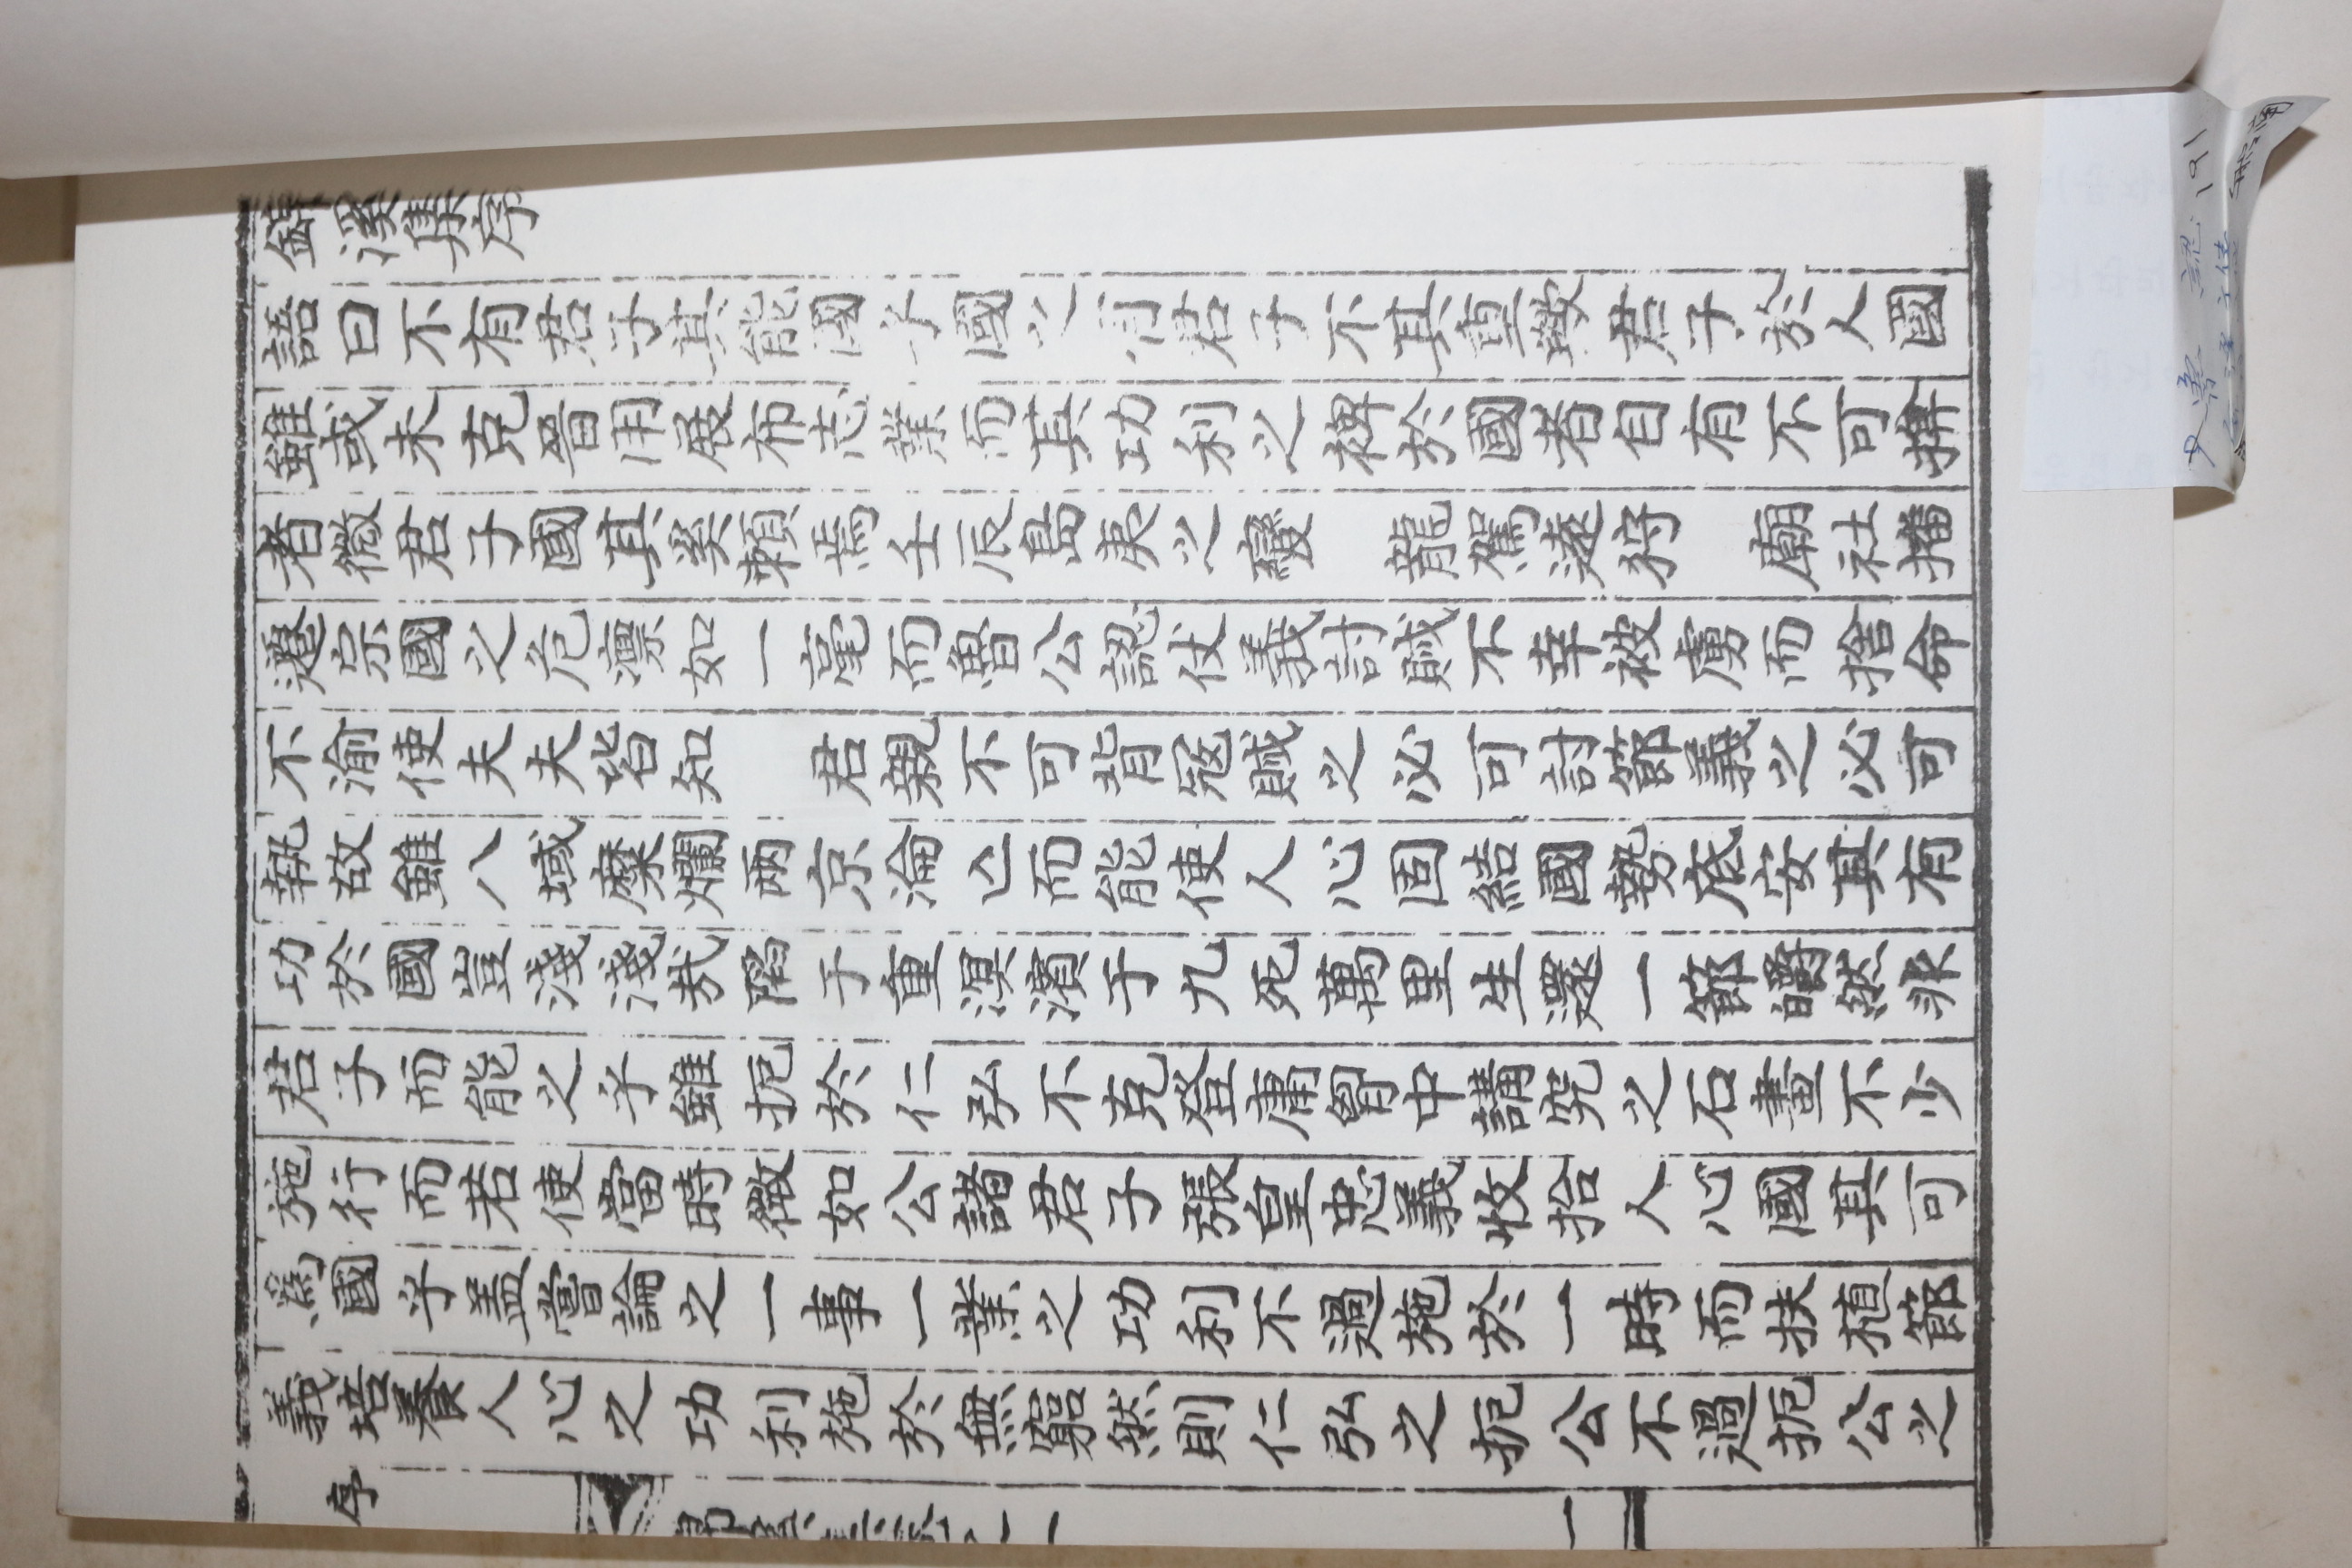 錦溪集序
語曰不有君子其能國乎國之有君子不其重歟君子於人國
雖或未克晉用展布志業而其功利之裨於國者自有不可揜
者微君子國其奚賴焉壬辰島夷之變 龍駕遠狩 廟社播
遷宗國之危凛如一毫而魯公認仗義討賊不幸被虜而捨命
不渝使夫夫皆知 君親不可背寇賊之必可討節義之必可
執故雖八域糜爛兩京淪亾而能使人心固結國勢底安其有
功於國豈淺淺㢤陷于重溟濱于九死萬里生還一節皭然非
君子而能之乎雖扼於仁弘不克登庸胷中講究之石畫不少
施行而若使當時微如公諸君子張皇忠義收拾人心國其可
爲國乎盖嘗論之一事一業之功利不過施於一時而扶植節
義培養人心之功利施於無窮然則仁弘之扼公不過扼公之
序
一
魯 認 191